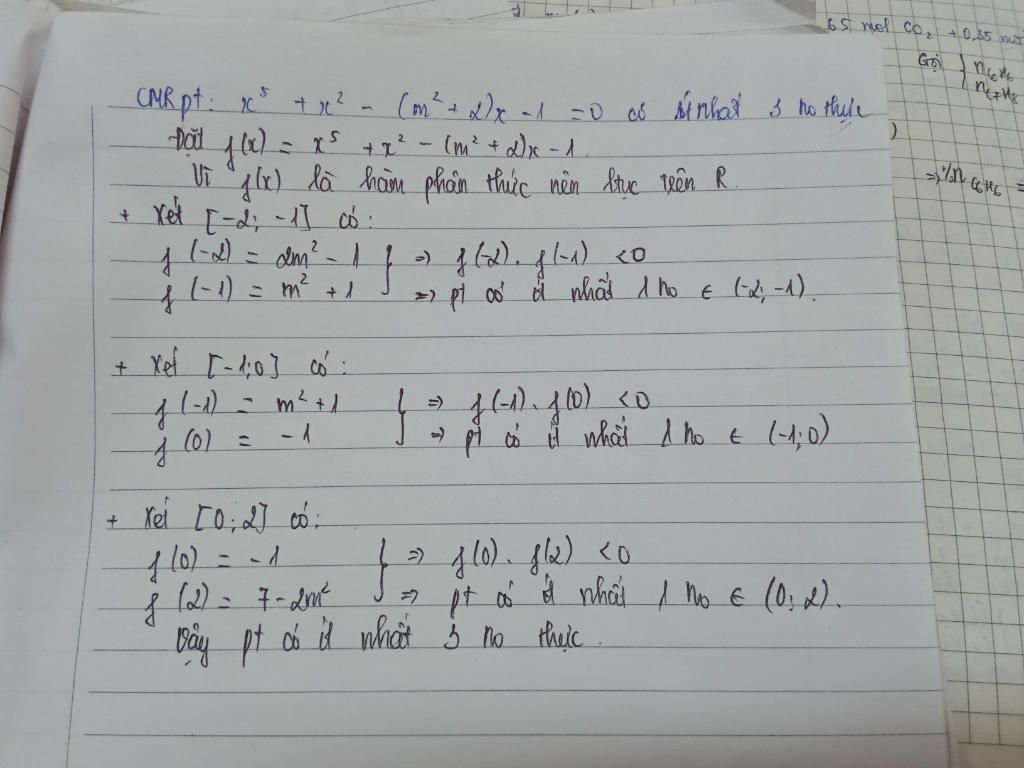 65 mol CO₂ + 0,35 mol
Gọi { nC₆H₆
nC₇H₈
CMR pt: x⁵ + x² - (m² + 2)x - 1 = 0 có ít nhất 3 no thực
Đặt f(x) = x⁵ + x² - (m² + 2)x - 1.
Vì f(x) là hàm phân thức nên ltục trên R.
+ Xét [-2; -1] có:
f(-2) = 2m² - 1 } => f(-2). f(-1) <0
f(-1) = m² + 1 => pt có ít nhất 1 no ∈ (-2; -1).
+ Xét [-1; 0] có:
f(-1) = m² + 1 } => f(-1). f(0) <0
f(0) = -1 => pt có ít nhất 1 no ∈ (-1; 0)
+ Xét [0; 2] có:
f(0) = -1 } => f(0). f(2) <0
f(2) = 7 - 2m² => pt có ít nhất 1 no ∈ (0; 2).
Vậy pt có ít nhất 3 no thực.